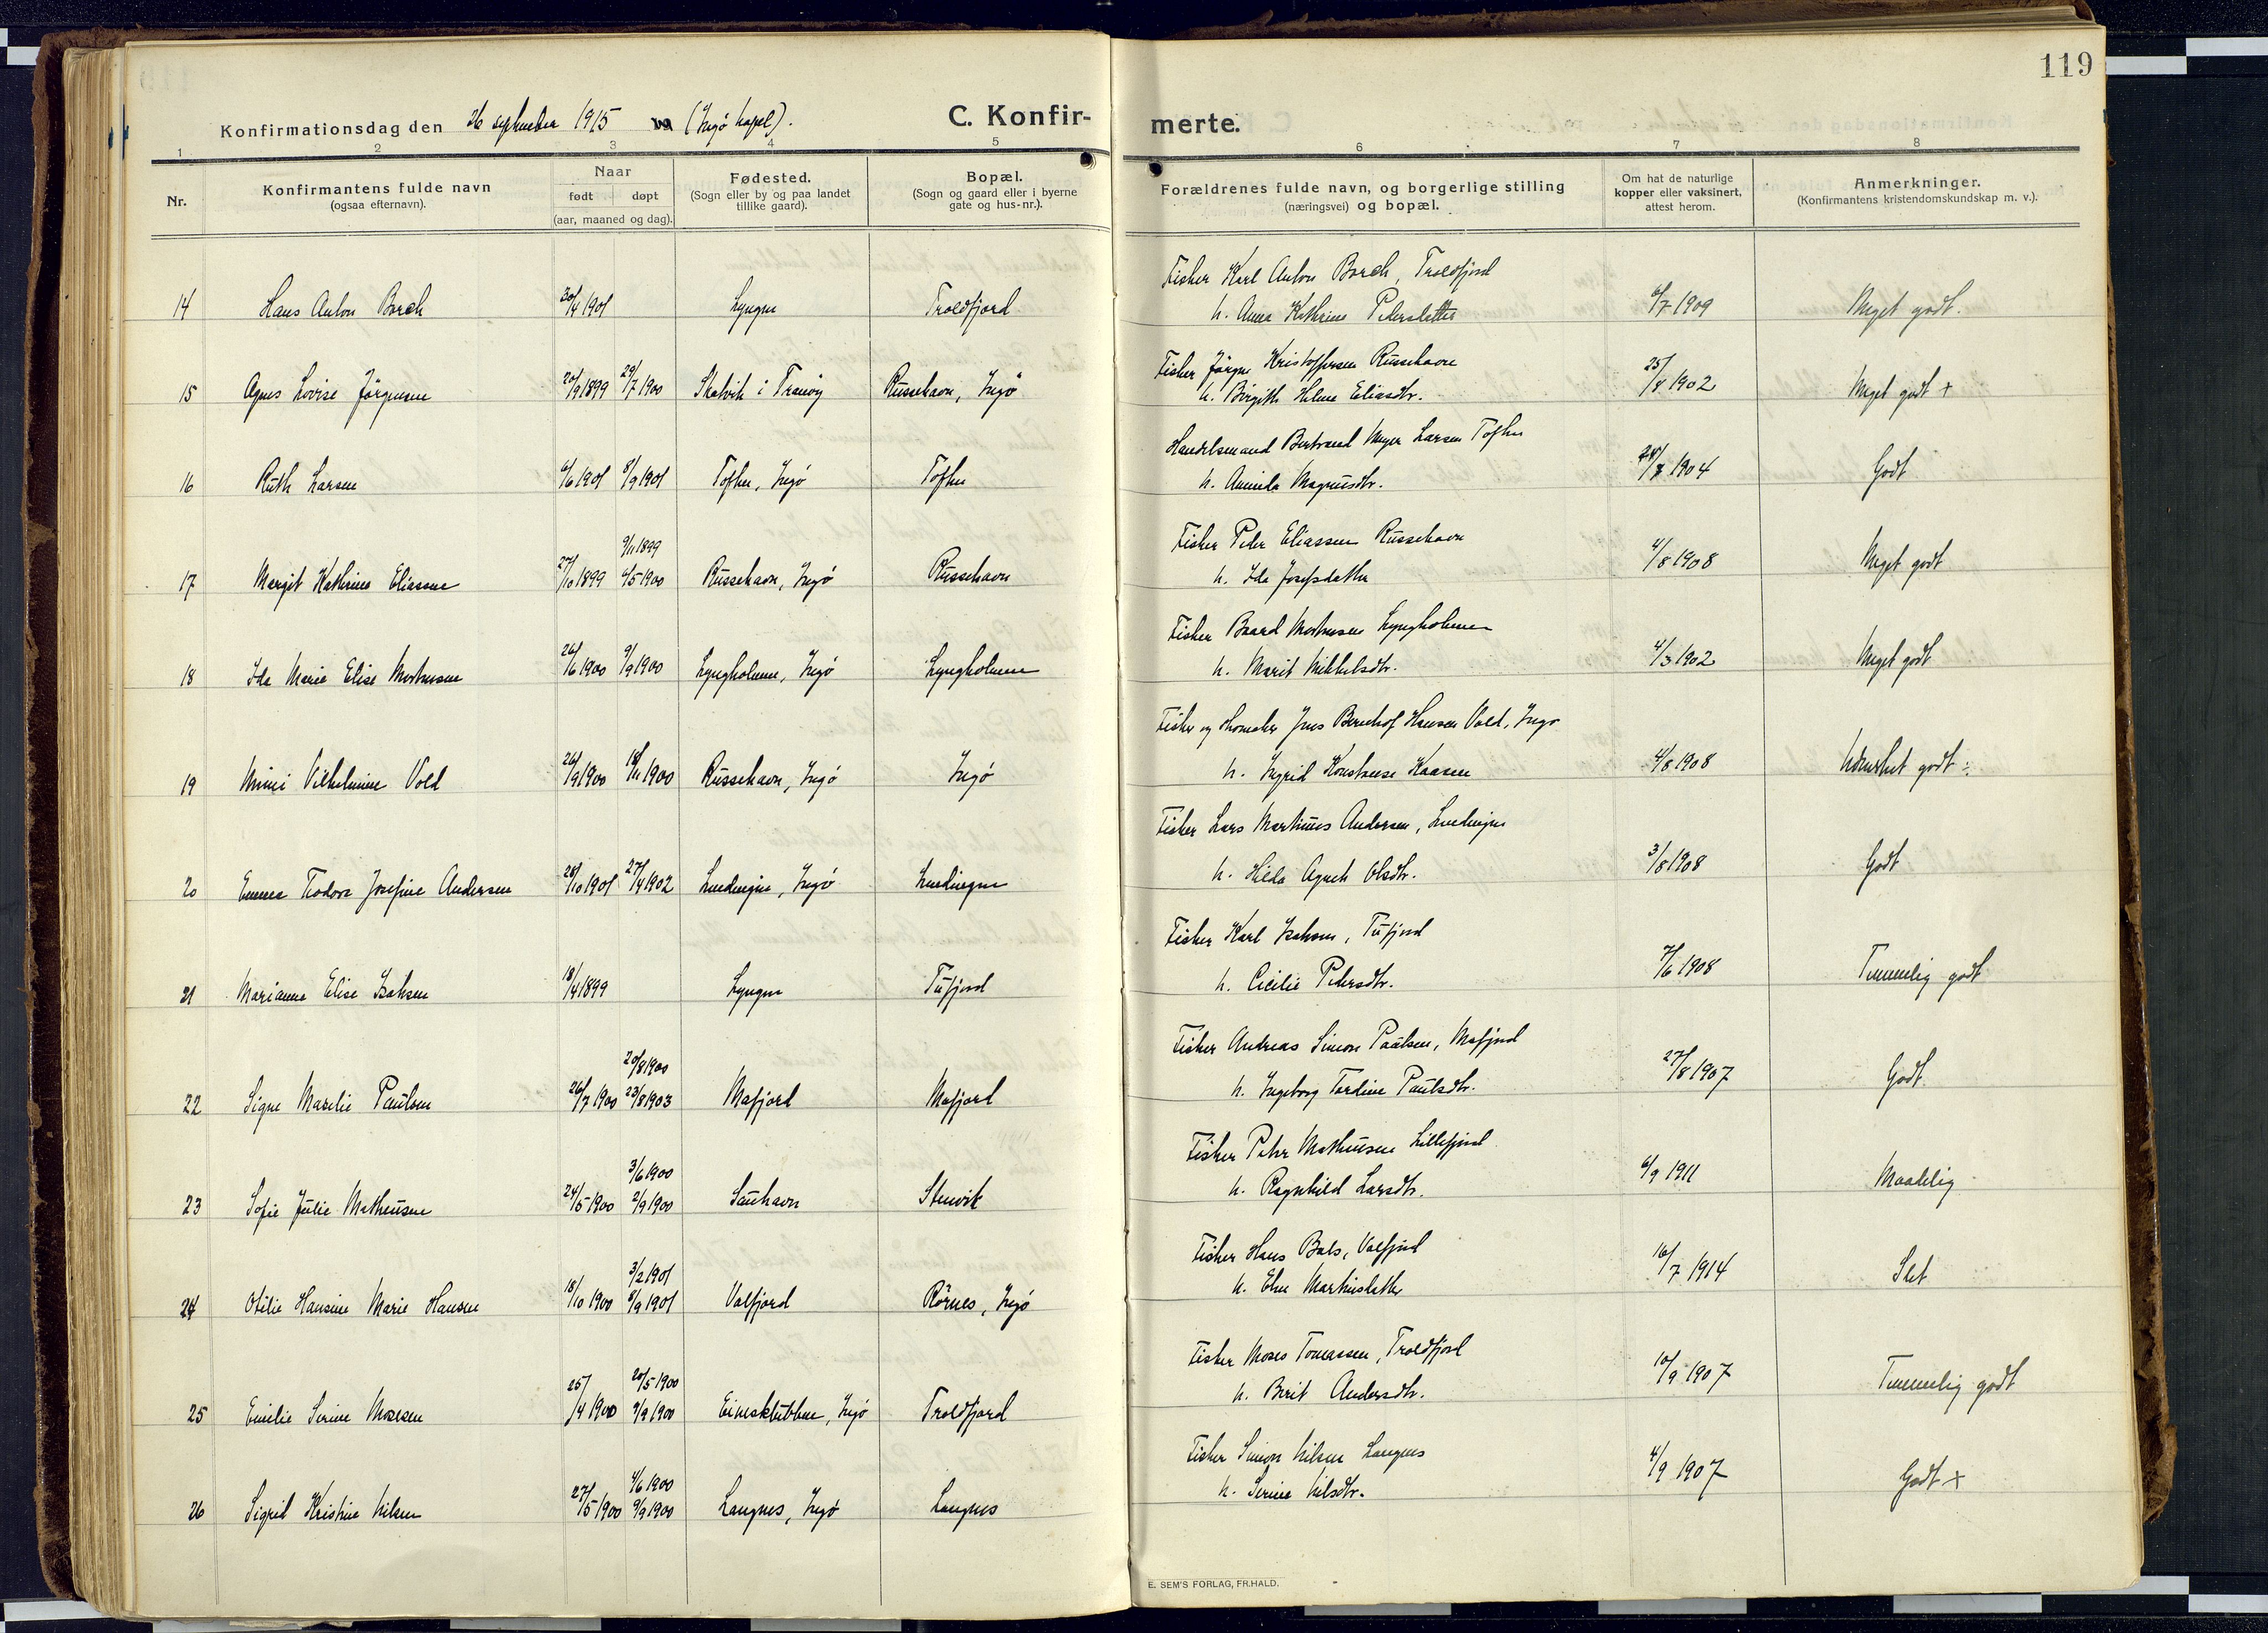 119
Konfirmationsdag den 26 september 1915 (Ingø kapel).
C. Konfirmerte.
1 2 3 4 5 6 7 8
Nr.
Konfirmantens fulde navn
(ogsaa efternavn).
Naar
født døpt
(aar, maaned og dag).
Fødested.
(Sogn eller by og paa landet
tillike gaard).
Bopæl.
(Sogn og gaard eller i byerne
gate og hus-nr.).
Forældrenes fulde navn, og borgerlige stilling
(næringsvei) og bopæl.
Om hat de naturlige
kopper eller vaksinert,
attest herom.
Anmerkninger.
(Konfirmantens kristendomskundskap m. v.).
Fisker Karl Anton Borch, Troldfjord
14 Hans Anton Borch 20/4 1901 Lyngen Troldfjord h. Anna Kathrine Pedersdatter 6/7 1909 Meget godt.
Fisker Jörgen Kristoffersen Russehavn
15 Agnes Lovise Jörgensen 20/9 1899 29/7 1900 Skatvik i Tranöy Russehavn, Ingö h. Birgith Helene Eliasdtr. 25/8 1902 Meget godt +
Handelsmand Bertrand Meyer Larsen Toften
16 Ruth Larsen 6/6 1901 8/9 1901 Toften, Ingö Toften h. Aminda Magnusdtr. 24/8 1904 Godt
9/11 1899
Fisker Peder Eliassen Russehavn
17 Margit Kathrine Eliassen 27/10 1899 4/5 1900 Russehavn, Ingö Russehavn h. Ida Josefsdatter 4/8 1908 Meget godt
Fisker Baard Mortensen Lyngholmen
18 Ida Marie Elise Mortensen 26/6 1900 9/9 1900 Lyngholmen, Ingö Lyngholmen h. Marit Mikkelsdtr. 4/3 1902 Meget godt
Fisker og skomaker Jens Bernhof Hansen Vold, Ingö
19 Mimi Vilhelmine Vold 26/9 1900 18/11 1900 Russehavn, Ingö Ingö h. Ingrid Konstanse Kaasen 4/8 1908 Udmerket godt ÷
Fisker Lars Martinus Andersen,
20 Emma Teodora Josefine Andersen 28/10 1901 27/4 1902 h. Hilda Agneth Olsdtr. 3/8 1908 Godt
Fisker Karl Isaksen, Tufjord
21 Marianne Elise Isaksen 18/4 1899 Lyngen Tufjord h. Cicilie Pedersdtr. 7/6 1908 Temmelig godt
20/8 1900
Fisker Andreas Simon Paulsen, Mafjord
22 Signe Marelie Paulsen 26/7 1900 23/8 1903 Mafjord Mafjord h. Ingeborg Tordine Paulsdtr. 27/8 1907 Godt
3/6 1900
Fisker Peder Matheusen Lillefjord
23 Sofie Julie Matheusen 24/5 1900 2/9 1900 Sauhavn Stenvik h. Ragnhild Larsdtr. 6/9 1911 Maadelig
3/2 1901
Fisker Hans Bals, Valfjord
24 Otilie Hansine Marie Hansen 18/10 1900 8/9 1901 Valfjord Rörnes, Ingö h. Elen 16/7 1914 Slet
20/5 1900
Fisker Moses Tomassen, Troldfjord
25 Emilie Serine Mosesen 25/4 1900 9/9 1900 Eineskubben, Ingö Troldfjord h. Berit Andersdtr. 10/9 1907 Temmelig godt
4/6 1900
Fisker Simon Nilsen Langnes
26 Sigrid Kristine Nilsen 27/5 1900 9/9 1900 Langnes, Ingö Langnes h. Serine Nilsdtr. 4/9 1907 Godt +
E. SEM'S FORLAG, FR.HALD.